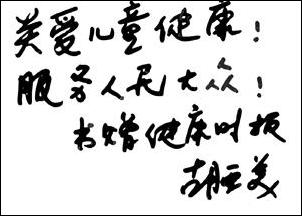 关爱儿童健康！
服务人民大众！
书赠健康时报
胡亚美